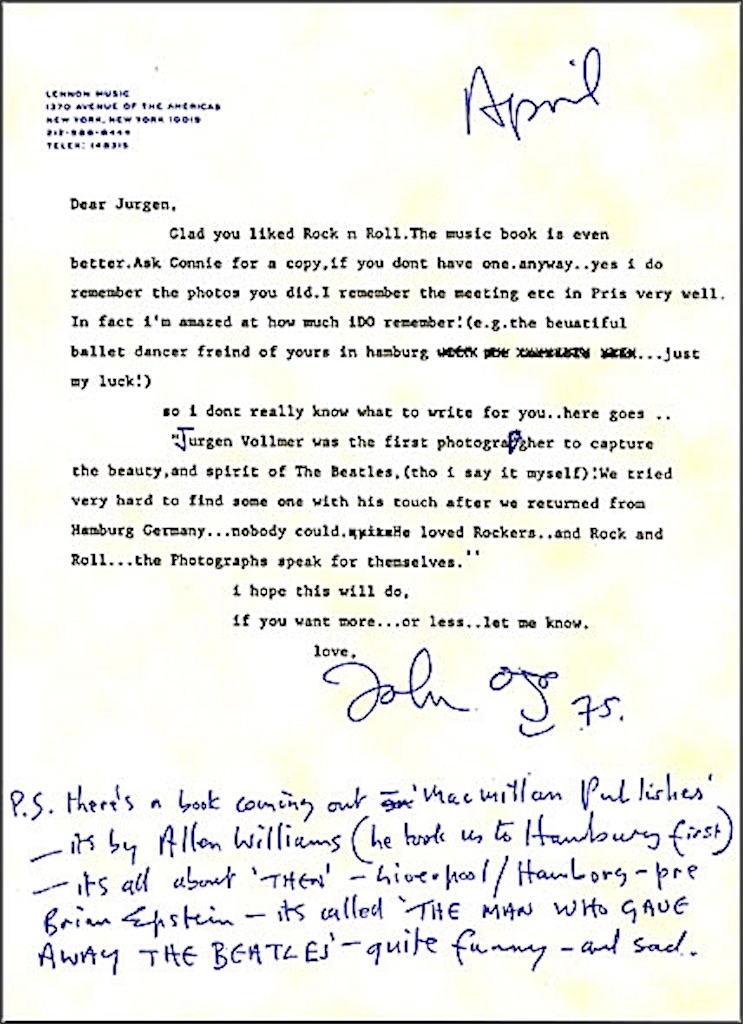 April
LENNON MUSIC
1370 AVENUE OF THE AMERICAS
NEW YORK, NEW YORK 10019
212-586-6444
TELEX: 148315
Dear Jurgen,
Glad you liked Rock n Roll.The music book is even
better.Ask Connie for a copy,if you dont have one.anyway..yes i do
remember the photos you did.I remember the meeting etc in Pris very well.
In fact i'm amazed at how much iDO remember!(e.g.the beuatiful
ballet dancer freind of yours in hamburg ...just
my luck!)
so i dont really know what to write for you..here goes ..
"Jurgen Vollmer was the first photograpgher to capture
the beauty,and spirit of The Beatles,(tho i say it myself)!We tried
very hard to find some one with his touch after we returned from
Hamburg Germany...nobody could.He loved Rockers..and Rock and
Roll...the Photographs speak for themselves."
i hope this will do,
if you want more...or less..let me know.
love,
John 75.
P.S. there's a book coming out 'Macmillan Publishes'
— its by Allan Williams (he took us to Hamburg first)
— its all about 'THEN' - Liverpool/Hamborg - pre
Brian Epstein - its called 'THE MAN WHO GAVE
AWAY THE BEATLES' - quite funny - and sad.